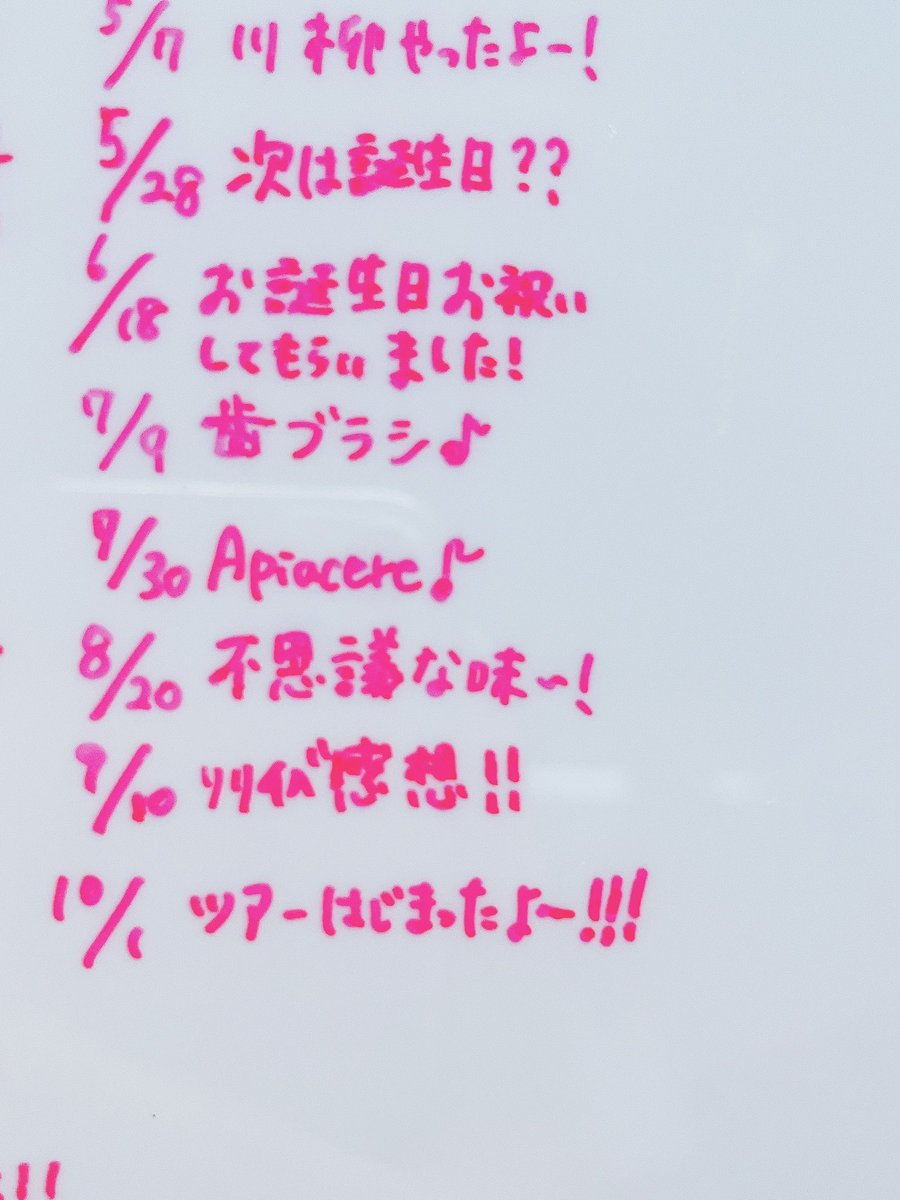 5/7 川柳やったよー!
5/28 次は誕生日??
6/18 お誕生日お祝い
してもらいました!
7/9 歯ブラシ♪
/30 Apiacere♪
8/20 不思議な味~!
9/10 リリイベ感想!!
10/1 ツアーはじまったよ~!!!
!!